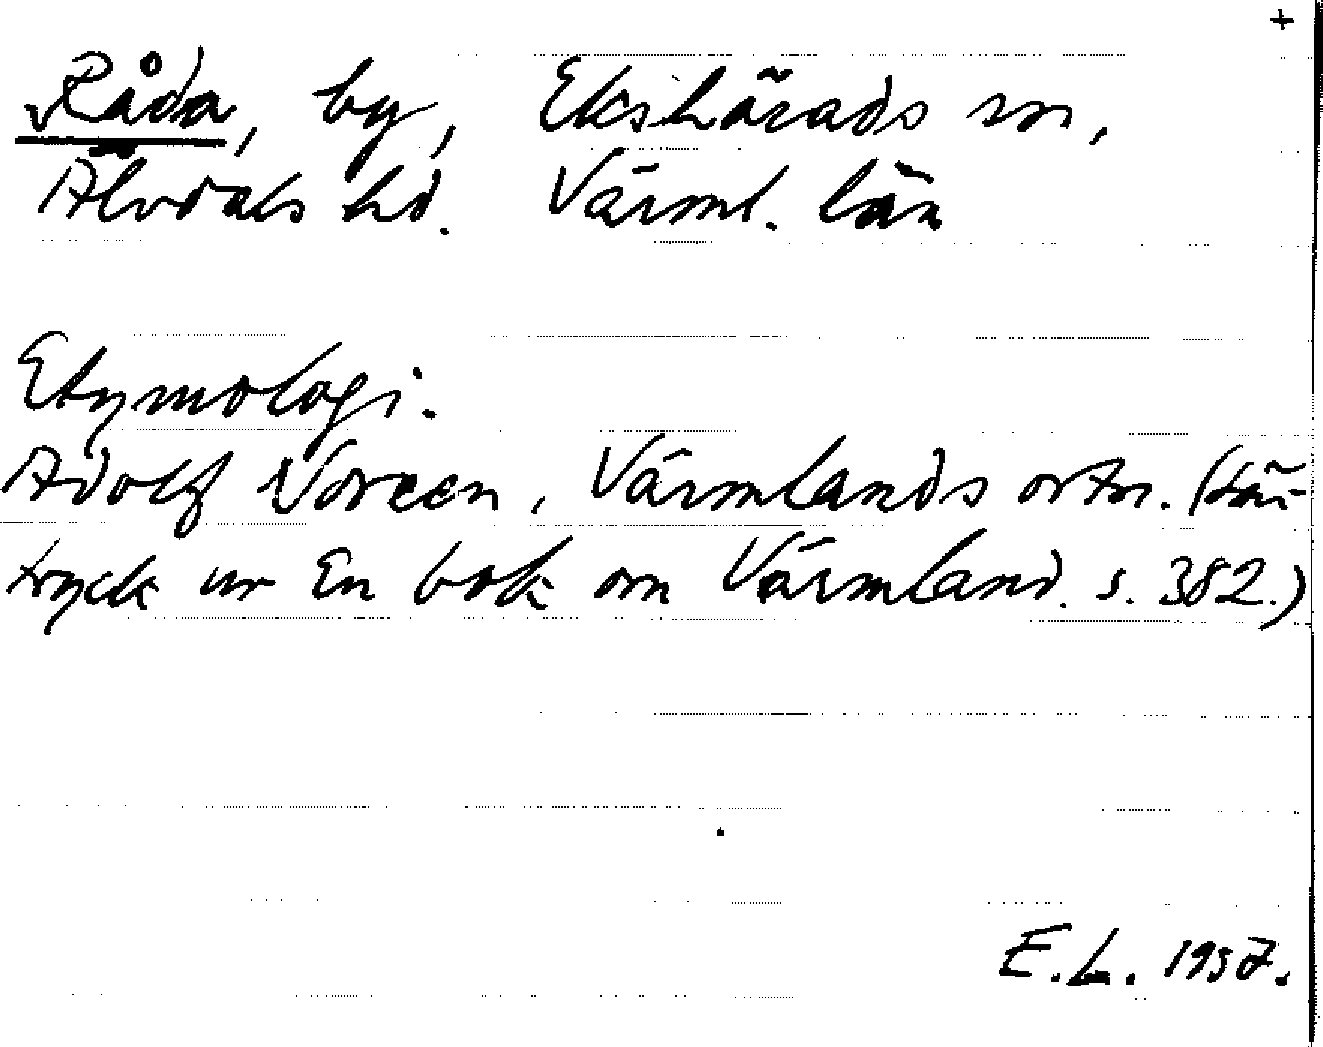 +
Råda, by, Ekshärads sn,
Älvdals hd. Värml. län
Etymologi.
Adolf Noreen, Värmlands ortn. (Sär-
tryck ur En bok om Värmland. s. 382.)
E.L. 1957.